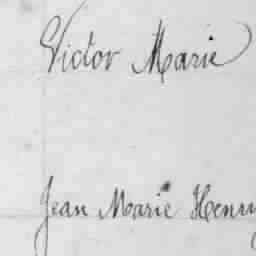 Victor Marie
Jean Marie Henry